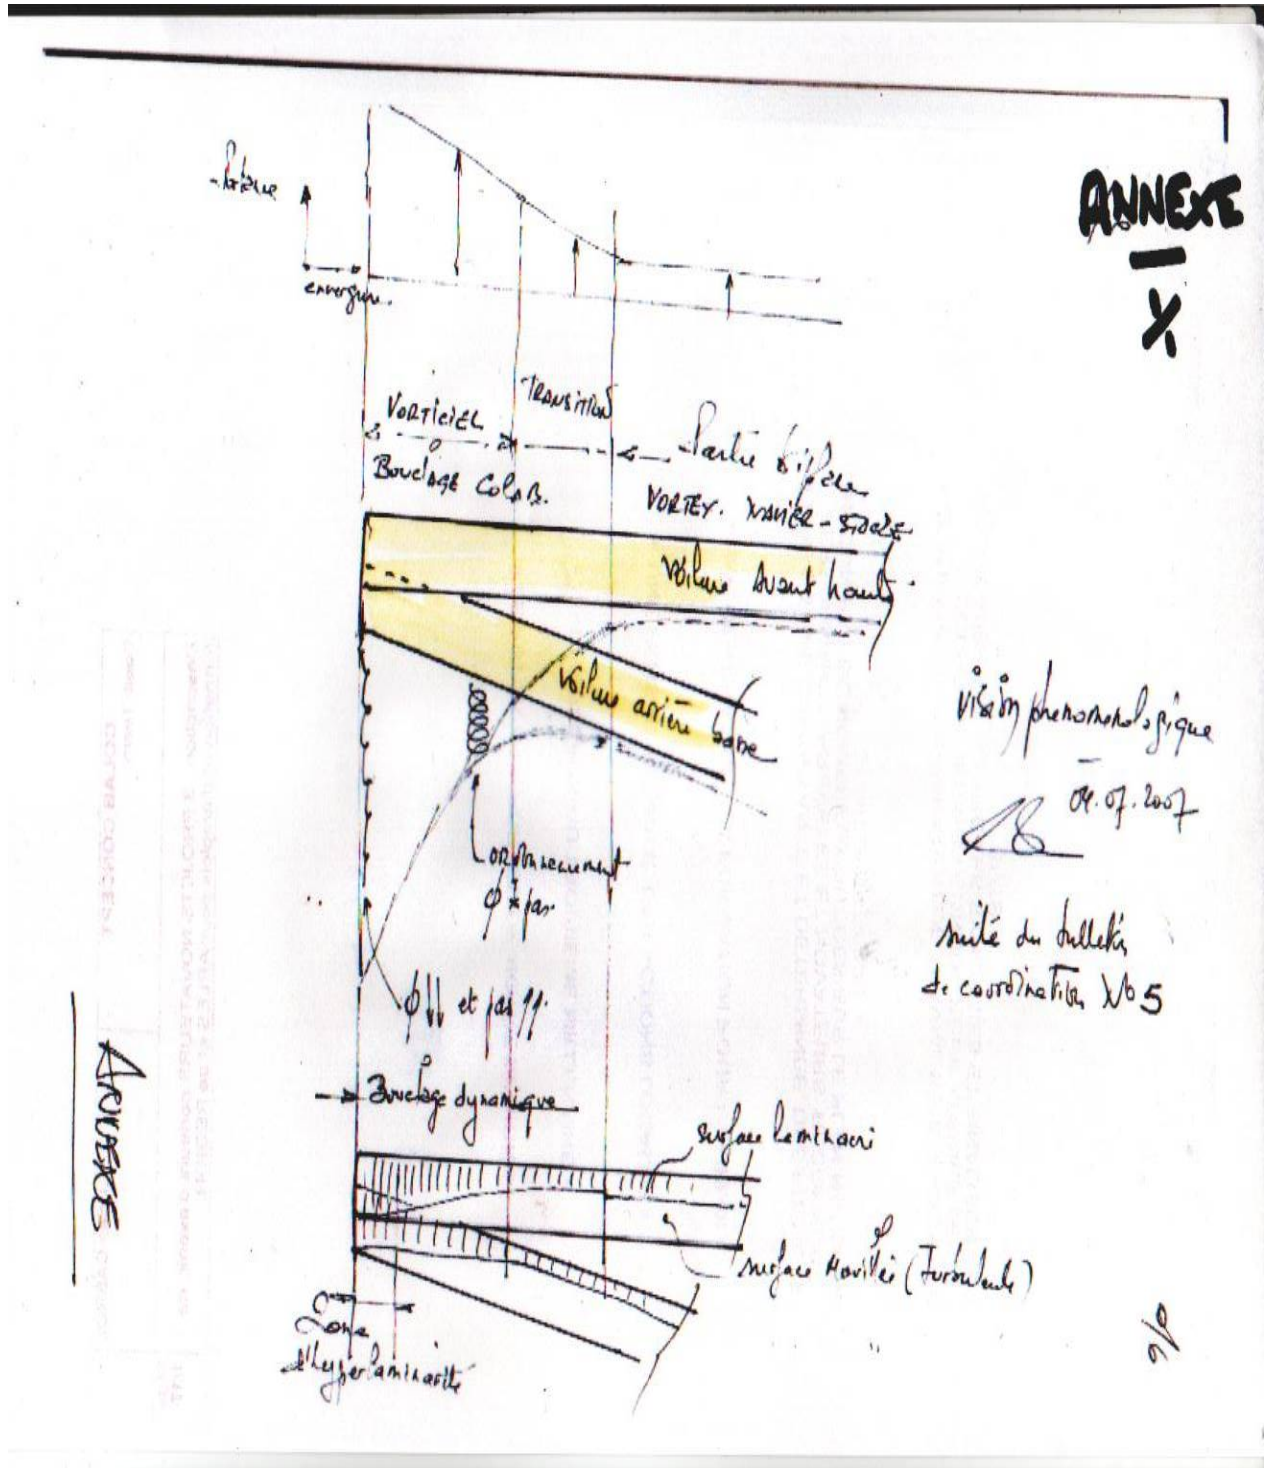 ANNEXE
X
Portance
envergure.
VORTICIEL
TRANSITION
Partie biplane
Bouclage Colab.
VORTEX.
Voilure avant haute
Voilure arrière basse
vision phenomenologique
04.07.2007
ordonnancement
φ x pas.
suite du bulletin
de coordination No 5
φ ↓↓ et pas ↑↑.
Bouclage dynamique
surface laminaire
surface Mouillée (Turbulente)
Zone
d'hyperlaminarité
ANNEXE